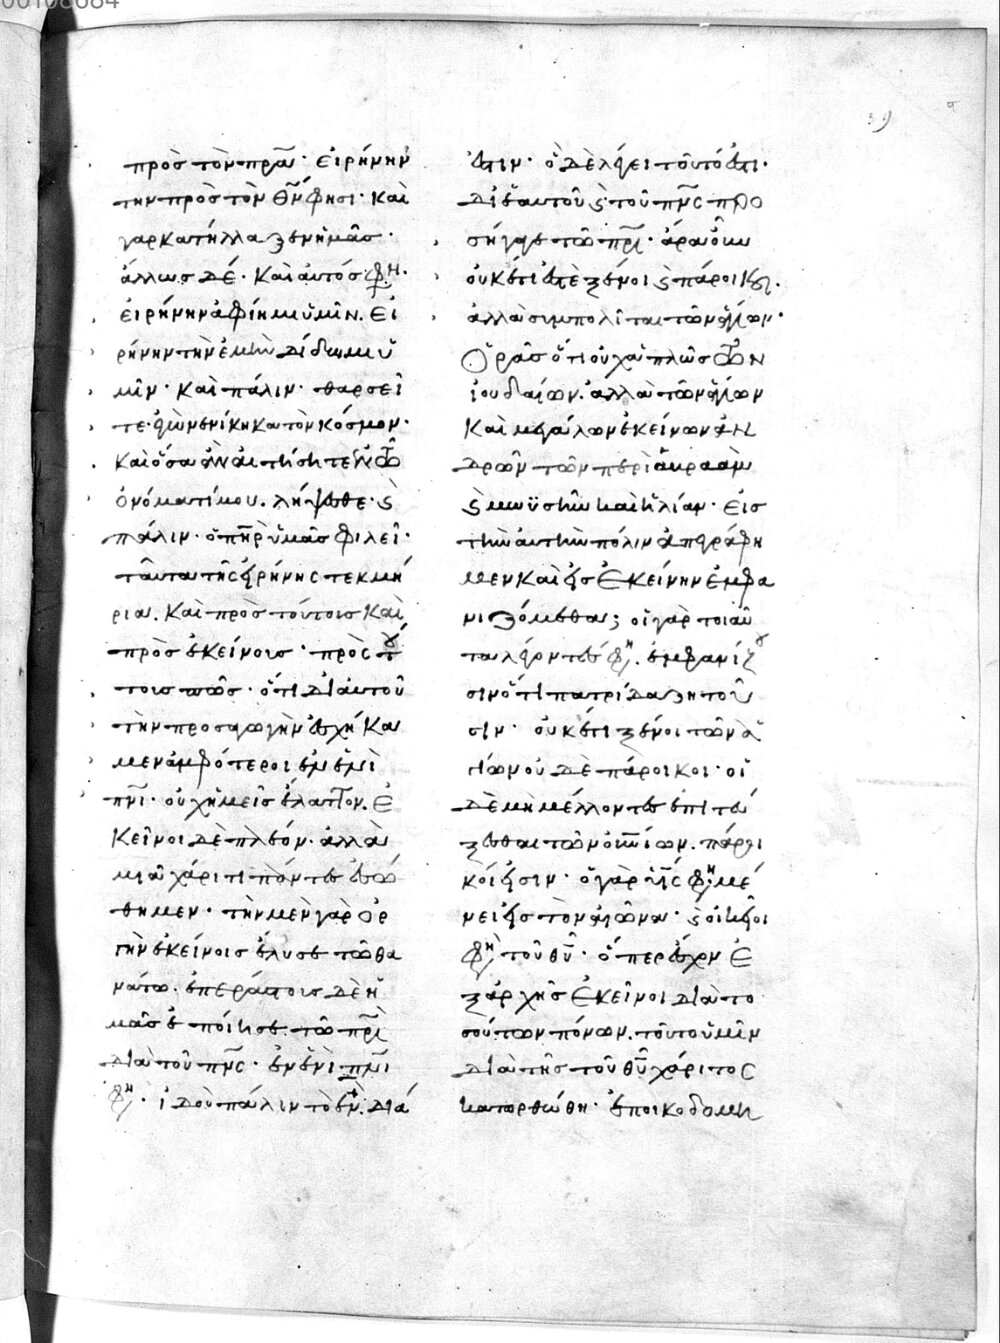 00108684
39
πρὸς τὸν πρα· εἰρήνην
τὴν πρὸς τὸν θν φησι· καὶ
γὰρ κατήλλαξεν ἡμᾶς·
ἄλλως δέ· καὶ αὐτός φη·
εἰρήνην ἀφίημι ὑμῖν. εἰ
ρήνην τὴν ἐμὴν δίδωμι ὑ
μῖν· καὶ πάλιν· θαρσεῖ
τε· ἐγὼ νενίκηκα τὸν κόσμον·
καὶ ὅσα ἐὰν αἰτήσητε ἐν τῶ
ὀνόματί μου. λήψεσθε· ϛ
πάλιν· ὁ πηρ ὑμᾶς φιλεῖ·
ταῦτα τῆς εἰρήνης τεκμή
ρια. καὶ πρὸς τούτοις καὶ
πρὸς ἐκείνοις· πρὸς τού
τοις πῶς· ὅτι δι' αὐτοῦ
τὴν προσαγωγὴν ἐσχήκα
μεν ἀμφότεροι ἐν ἑνὶ
πνι· οὐχ ἡμεῖς ἔλαττον. ἐ
κεῖνοι δὲ πλέον· ἀλλὰ
μιᾶ χάριτι πάντες ἐσώ
θημεν· τὴν μὲν γὰρ ὀρ
γὴν ἐκείνοις ἔλυσε τῶ θα
νάτω. ἐπεράστους δὲ ἡ
μᾶς ἐποίησε τῶ πρι
διὰ τοῦ πνς· ἐν ἑνὶ πνι
φη· ἰδοὺ πάλιν τὸ ἐν. διά
ἐστιν· ὃ δὲ λέγει τοῦτό ἐστι·
δι' ἑαυτοῦ ϛ τοῦ πνς προ
σήγαγε τῶ πρι· ἄρα οὖν
οὐκέτι ἐστὲ ξένοι ϛ πάροικοι.
ἀλλὰ συμπολῖται τῶν ἁγίων·
Ὁρᾶς ὅτι οὐχ ἁπλῶς τῶν
ἰουδαίων. ἀλλὰ τῶν ἁγίων
καὶ μεγάλων ἐκείνων ἀν
δρῶν τῶν περὶ ἀβραὰμ
ϛ μωϋσῆν καὶ ἠλίαν· εἰς
τὴν αὐτὴν πόλιν ἀπεγράφη
μεν καὶ εἰς ἐκείνην ἐμφα
νιζόμεθα; οἱ γὰρ τοιαῦ
τα λέγοντες φη. ἐμφανίζου
σιν ὅτι πατρίδα ζητοῦ
σιν· οὐκέτι ξένοι τῶν ἁ
γίων οὐδὲ πάροικοι· οἱ
δὲ μὴ μέλλοντες ἐπιτεύ
ξεσθαι τῶν οὐνίων. πάροι
κοί εἰσιν· ὁ γὰρ υἱς φη μέ
νει εἰς τὸν αἰῶνα· ϛ οἰκεῖοι
φη τοῦ θυ· ὅπερ εἶχον ἐ
ξ ἀρχῆς ἐκεῖνοι διὰ το
σούτων πόνων. τοῦτο ὑμῖν
διὰ τῆς τοῦ θυ χάριτος
κατορθώθη· ἐποικοδομη